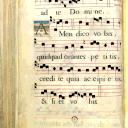 ad te Domine.
Amen dico vobis,
quidquid orantes petitis,
credite quia accipietis
& fiet vobis